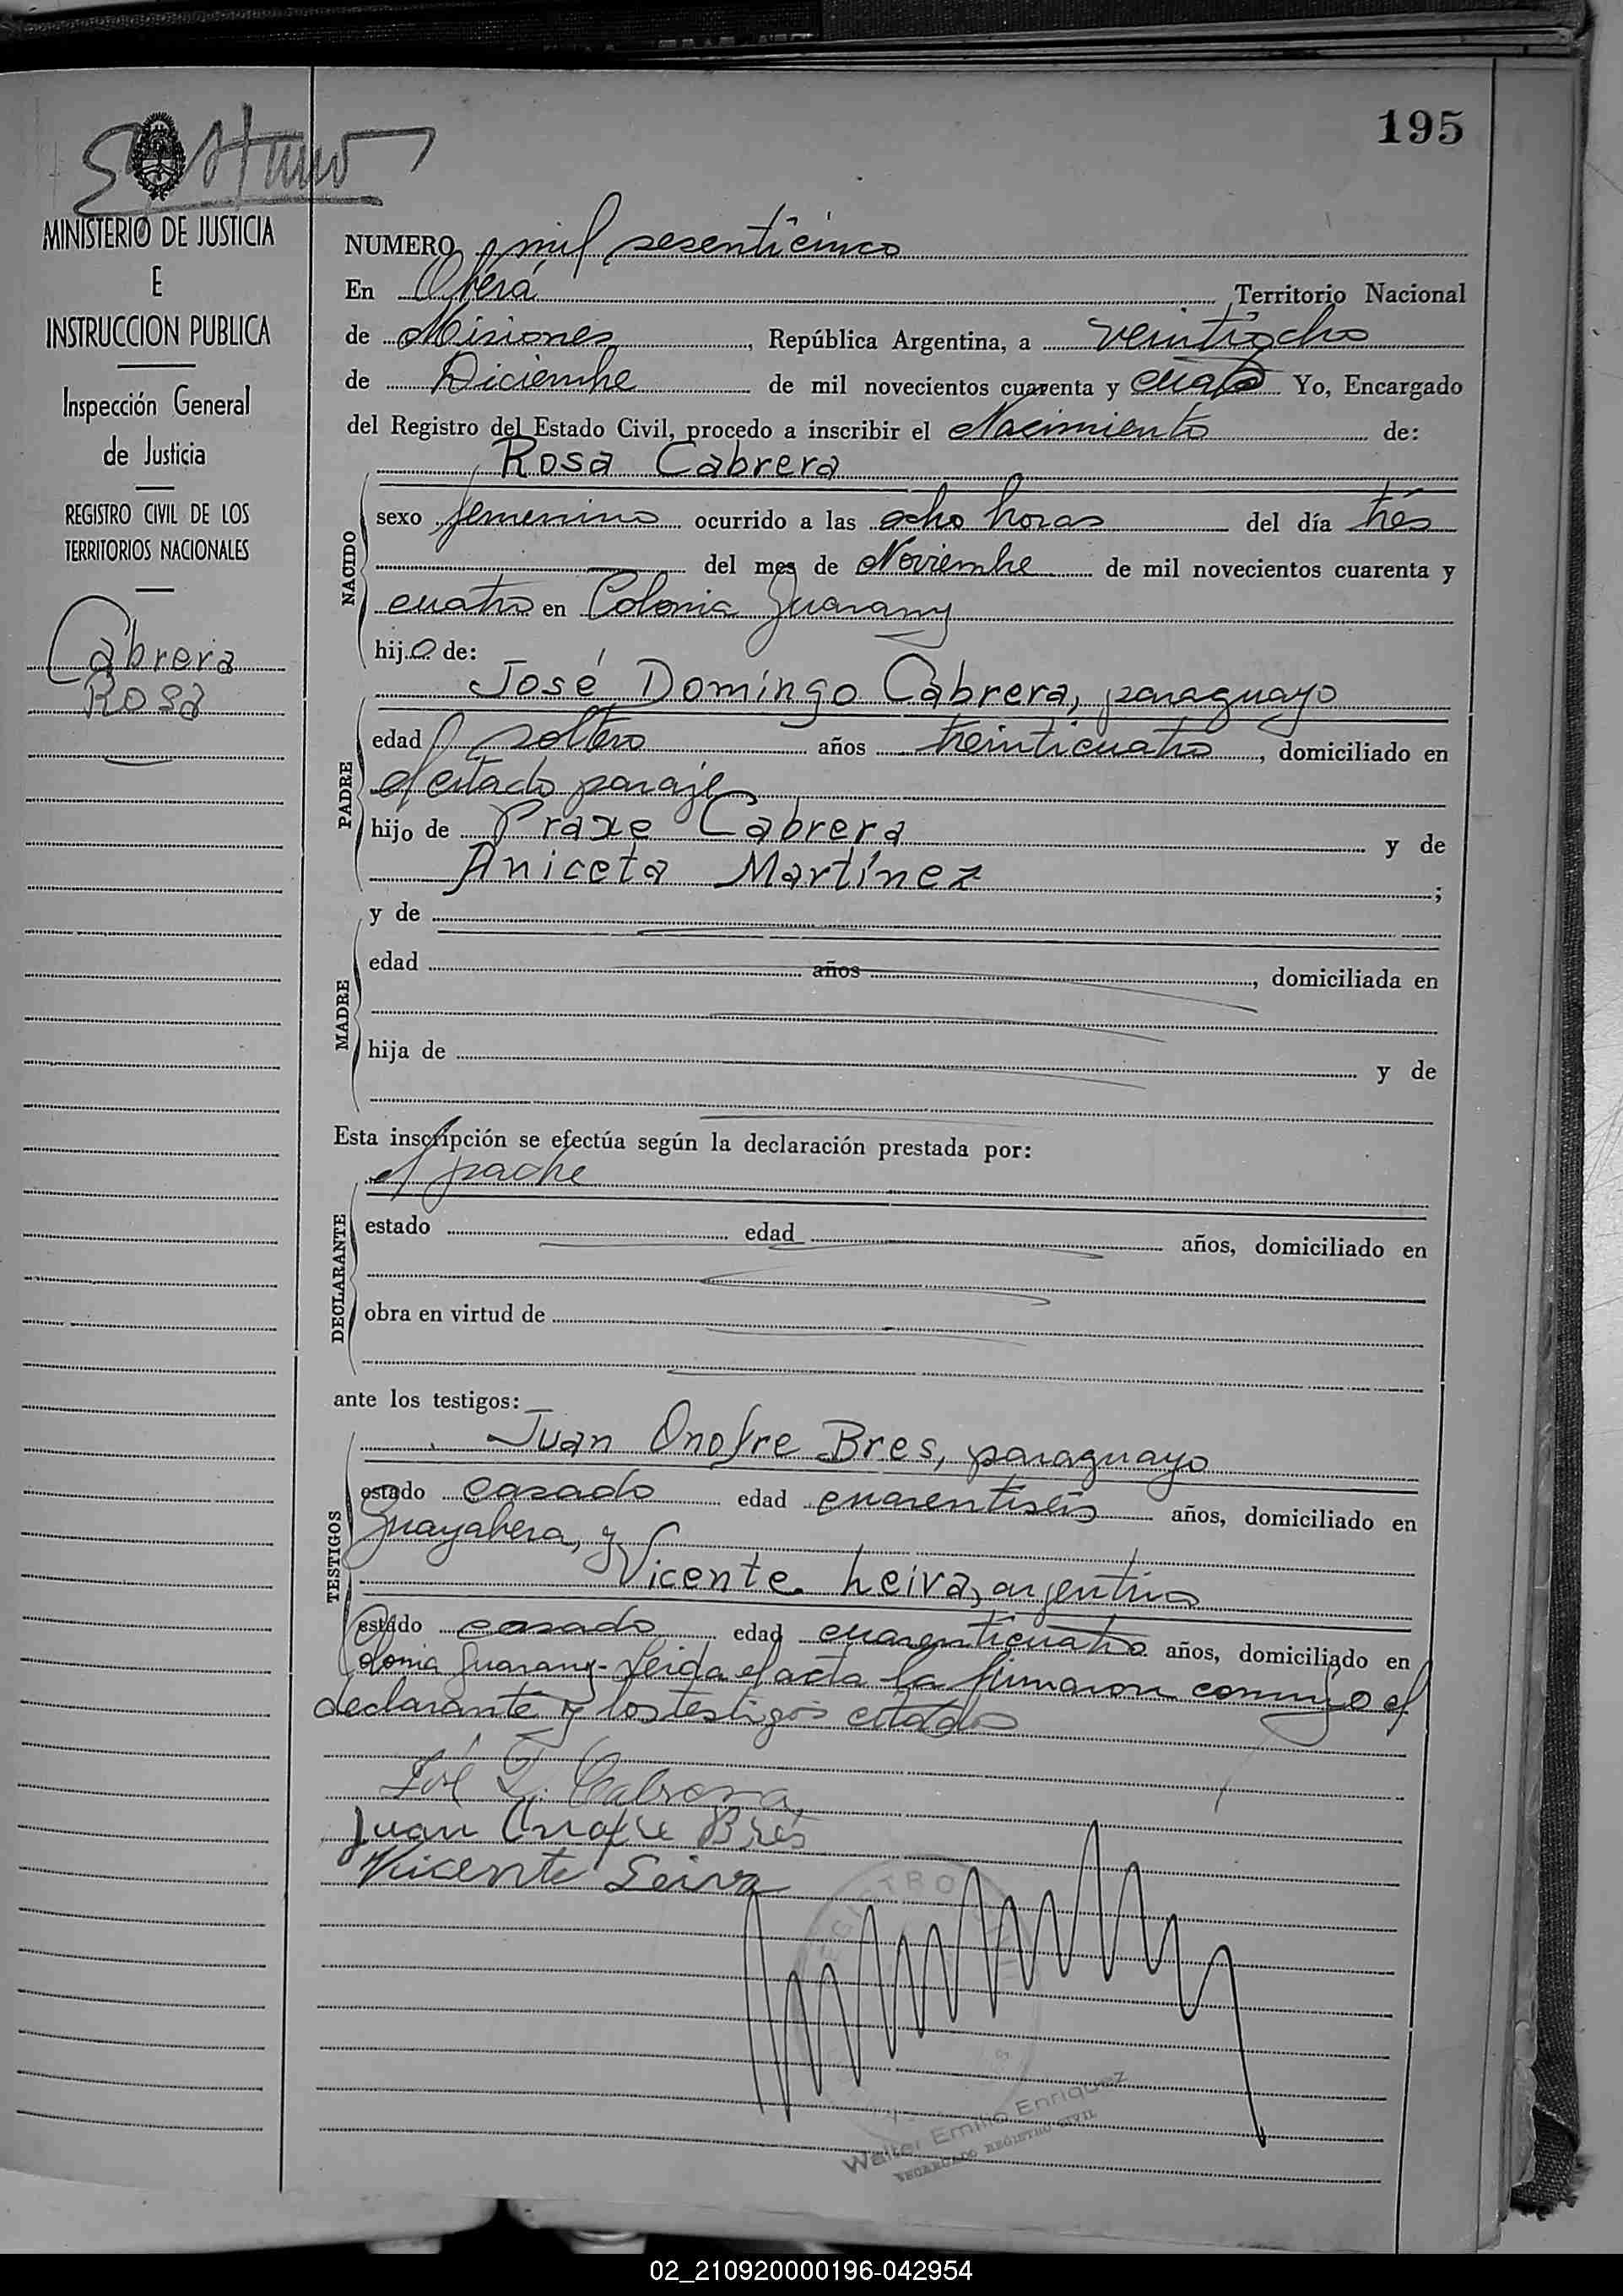 195
MINISTERIO DE JUSTICIA
E
INSTRUCCION PUBLICA
Inspección General
de Justicia
REGISTRO CIVIL DE LOS
TERRITORIOS NACIONALES
Cabrera
Rosa
NUMERO mil sesenticinco
En Oberá Territorio Nacional
de Misiones, República Argentina, a veintiocho
de Diciembre de mil novecientos cuarenta y cuatro Yo, Encargado
del Registro del Estado Civil, procedo a inscribir el Nacimiento de:
Rosa Cabrera
NACIDO
sexo femenino ocurrido a las ocho horas del día tres
del mes de Noviembre de mil novecientos cuarenta y
cuatro en Colonia Guarany
hijo de:
José Domingo Cabrera, paraguayo
PADRE
edad soltero años treinticuatro, domiciliado en
el citado paraje
hijo de Praxe Cabrera y de
Aniceta Martínez;
MADRE
y de
edad años, domiciliada en
hija de y de
Esta inscripción se efectúa según la declaración prestada por:
el padre
DECLARANTE
estado edad años, domiciliado en
obra en virtud de
ante los testigos:
Juan Onofre Bres, paraguayo
TESTIGOS
estado casado edad cuarentiseis años, domiciliado en
Guayabera, y
Vicente Leiva, argentino
estado casado edad cuarenticuatro años, domiciliado en
Colonia Guarany- Leida el acta la firmaron conmigo el
declarante y los testigos citados
José D. Cabrera,
Juan Onofre Brés
Vicente Leiva
REGISTRO
Walter Emilio Enriquez
ENCARGADO REGISTRO CIVIL
02_210920000196-042954